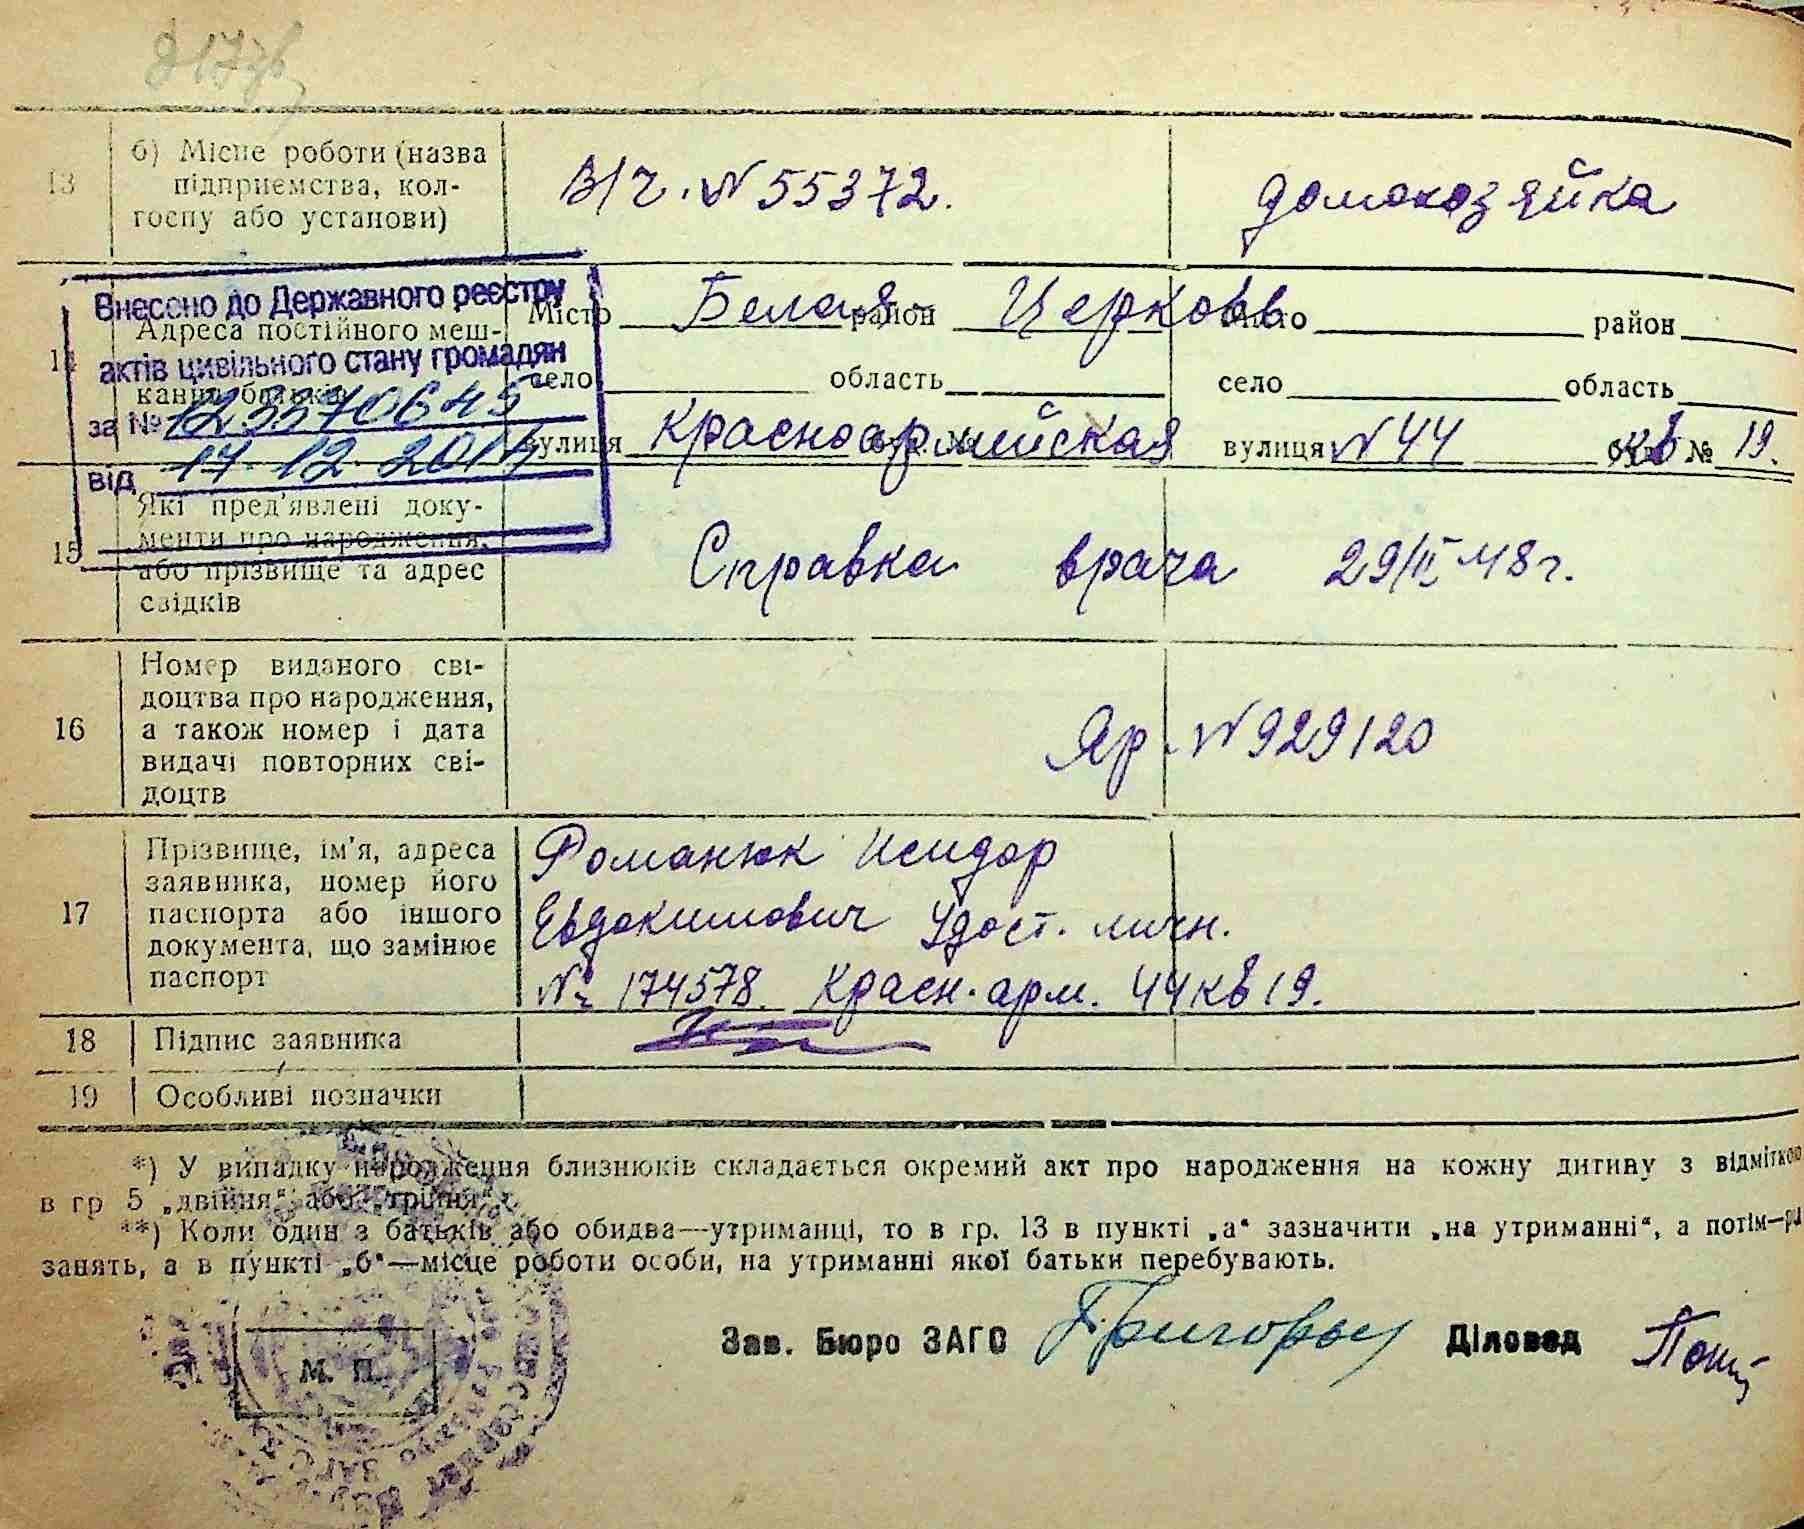 13
б) Місце роботи (назва
підприємства, кол-
госпу або установи)
В/ч. N 55372.
домохозяйка
Внесено до Державного реєстру
актів цивільного стану громадян
за №
від 17.12.201
14
Адреса постійного меш-
кання батьків
Місто Белая район Церковь Місто район
село область село область
вулиця Красноармейская вулиця N 44 кв № 19.
15
Які пред'явлені доку-
менти про народження,
або прізвище та адрес
свідків
Справка врача 29/II 48 г.
16
Номер виданого сві-
доцтва про народження,
а також номер і дата
видачі повторних сві-
доцтв
Яр. N 929120
17
Прізвище, ім'я, адреса
заявника, номер його
паспорта або іншого
документа, що замінює
паспорт
Романюк Исидор
Евдокимович Удост. личн.
№ 174578. Красн. арм. 44 кв 19.
18 Підпис заявника
19 Особливі позначки
*) У випадку народження близнюків складається окремий акт про народження на кожну дитину з відміткою
в гр 5 „двійня“ або „трійня“.
**) Коли один з батьків або обидва—утриманці, то в гр. 13 в пункті „а“ зазначити „на утриманні“, а потім—рід
занять, а в пункті „б“—місце роботи особи, на утриманні якої батьки перебувають.
М. П.
Зав. Бюро ЗАГС
Діловод